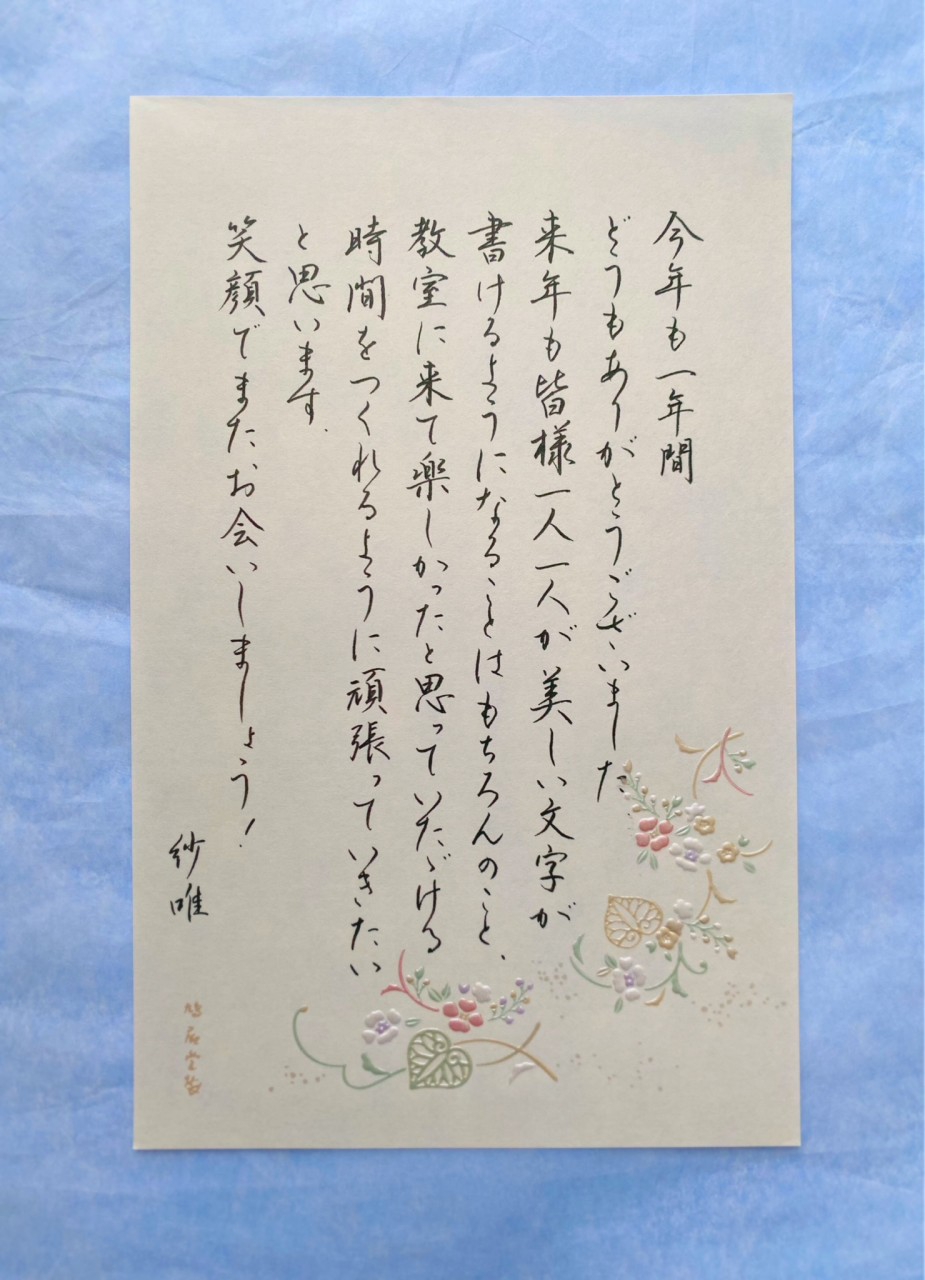 今年も一年間
どうもありがとうございました
来年も皆様一人一人が美しい文字が
書けるようになることはもちろんのこと、
教室に来て楽しかったと思っていたゞける
時間をつくれるように頑張っていきたい
と思います。
笑顔でまたお会いしましょう!
紗唯
鳩居堂製